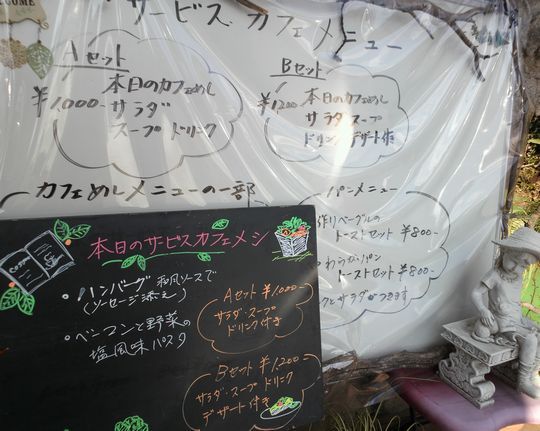 COME
サービス カフェメニュー
Aセット
¥1000-
本日のカフェめし
サラダ
スープ ドリンク
Bセット
¥1200
本日のカフェめし
サラダ スープ
ドリンク デザート付
カフェめしメニューの一部
パンメニュー
作りベーグルの
トーストセット ¥800-
トーストセット ¥800-
クとサラダがつきます
本日のサービスカフェメシ
・ハンバーグ 和風ソースで
(ソーセージ添え)
・ベーコンと野菜の
塩風味パスタ
Aセット ¥1000-
サラダ・スープ
ドリンク付き
Bセット ¥1,200
サラダ・スープ ドリンク
デザート付き